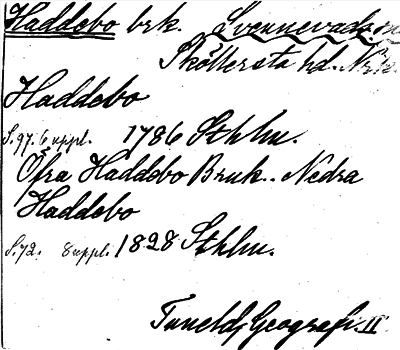 Haddebo brk. Svennevads sn
Sköllersta hd. Nrk.
Haddebo
S. 97. 6 uppl. 1786 Sthlm.
Öfra Haddebo Bruk. Nedra
Haddebo
S. 72. 8 uppl. 1828 Sthlm.
Tunelds Geografi. II